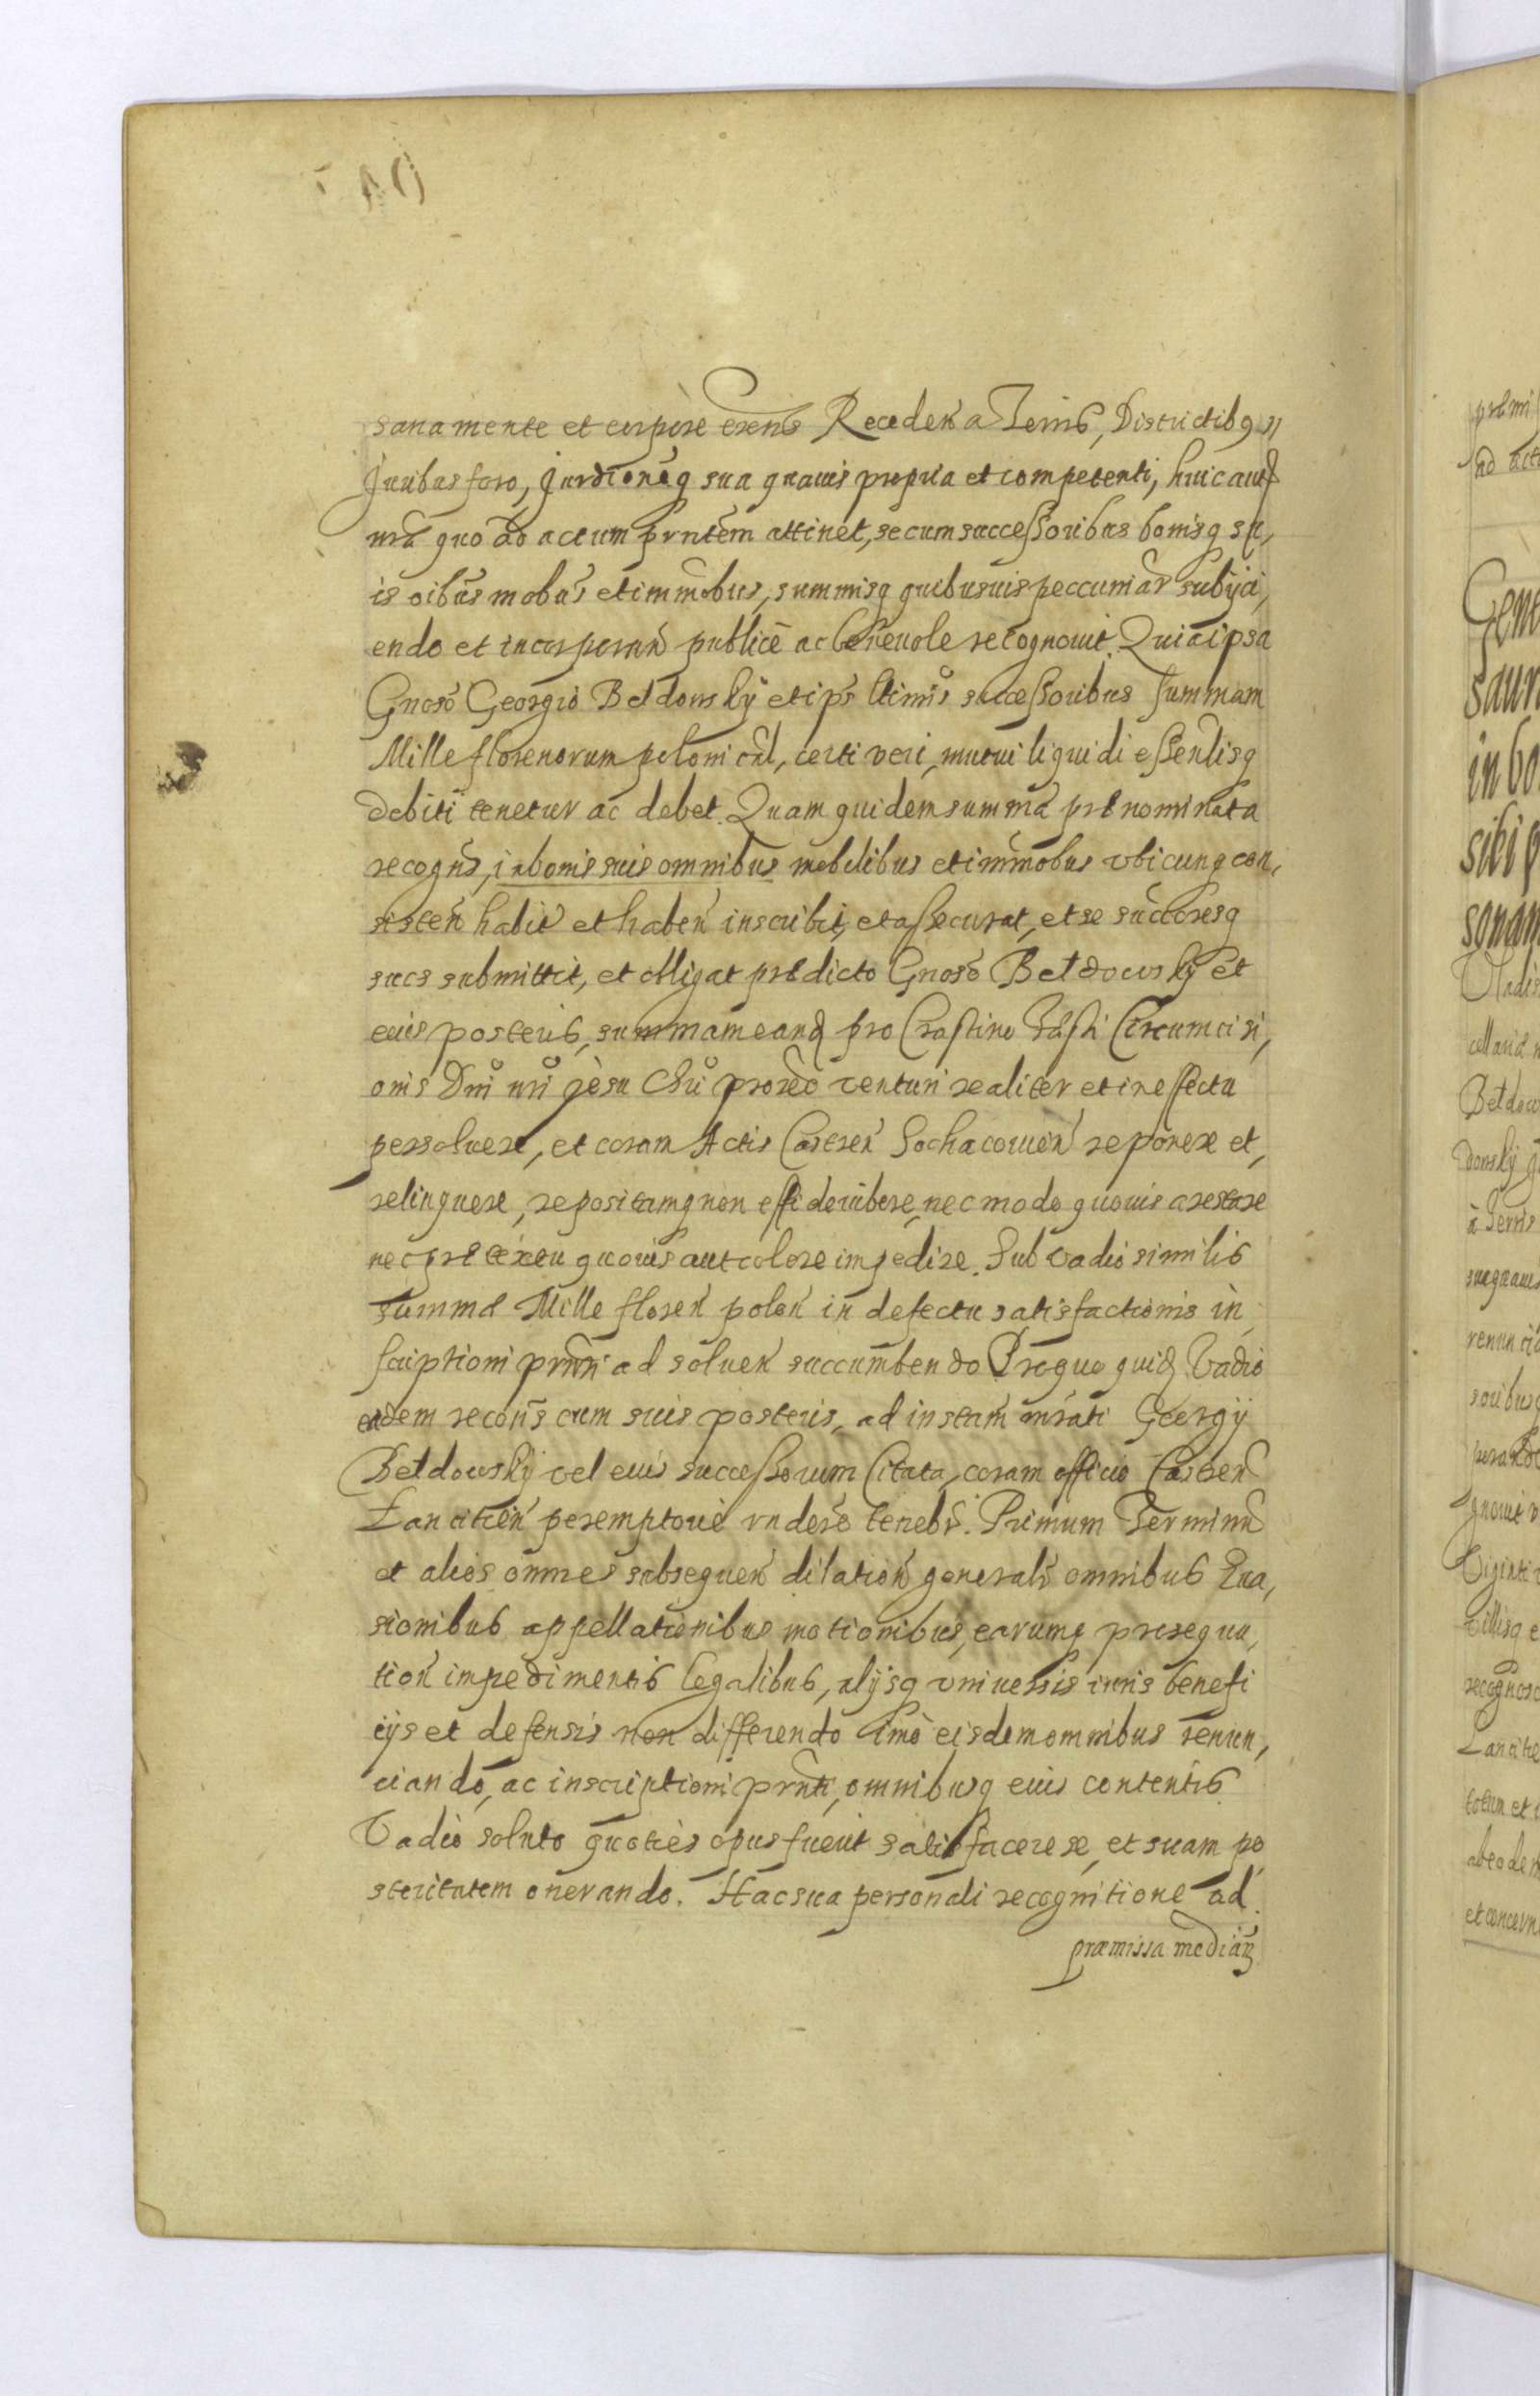 sana mente et corpore exens Receden a Terris, Districtibq
Juribus foro, Jurdioneq sua quavis propria et competenti, huic autē
nrā quo ad actum prntem attinet, se cum successoribus bonisq su,
is oibus mobūs et immobus, summisq quibusvis peccuniar subijci,
endo et incorporan publicè ac benevole recognovit. Quia ipsa
Gnoso Georgio Bełdowskÿ et ips ltimis successoribus summam
Mille florenorum polonical, certi veri, mutui liquidi essentisq
debiti tenetur ac debet. Quam quidem summā prænominata
recogns, in bonis suis omnibus mobilibus et immobus vbicunq con,
sisten habit et haben inscribit, et assecurat, et se succoresq
suos submittit, et obligat prædicto Gnoso Bełdowskÿ et
eius posteris, summam eand pro Crastino Festi Circumcisi,
onis Dni nri Jesu Chri proxeo venturi realiter et in effectu
persolvere, et coram Actis Castren Sochacovien reponere et,
relinquere, repositamq non efficle inhibere, nec modo quovis arestare
nec prætextu quovis aut colore impedire. Sub vadio similis
summæ Mille floren polon in defectu satisfactionis in,
scriptioni prnti ad solven succumbendo Pro quo quid Vadio
eadem recons cum suis posteris, ad instam mrati Georgÿ
Bełdowskÿ vel eius successorum Citata, coram officio Castren
Lancicien peremptoriè rndere tenebr. Primum Terminu
et alios omnes subsequen dilation generali omnibus Eua,
sionibus appellationibus motionibus, earumq prosequu,
tion impedimentis legalibus, alijsq vniuersis iuris benefi
cijs et defensis non differendo Imò eisdem omnibus renun,
ciando, ac inscriptioni prnti, omnibusq eius contentis
Vadio soluto quotiès opus fuerit satisfacere se, et suam po
steritatem onerando. Hac sua personali recognitione ad
præmissa mediañ